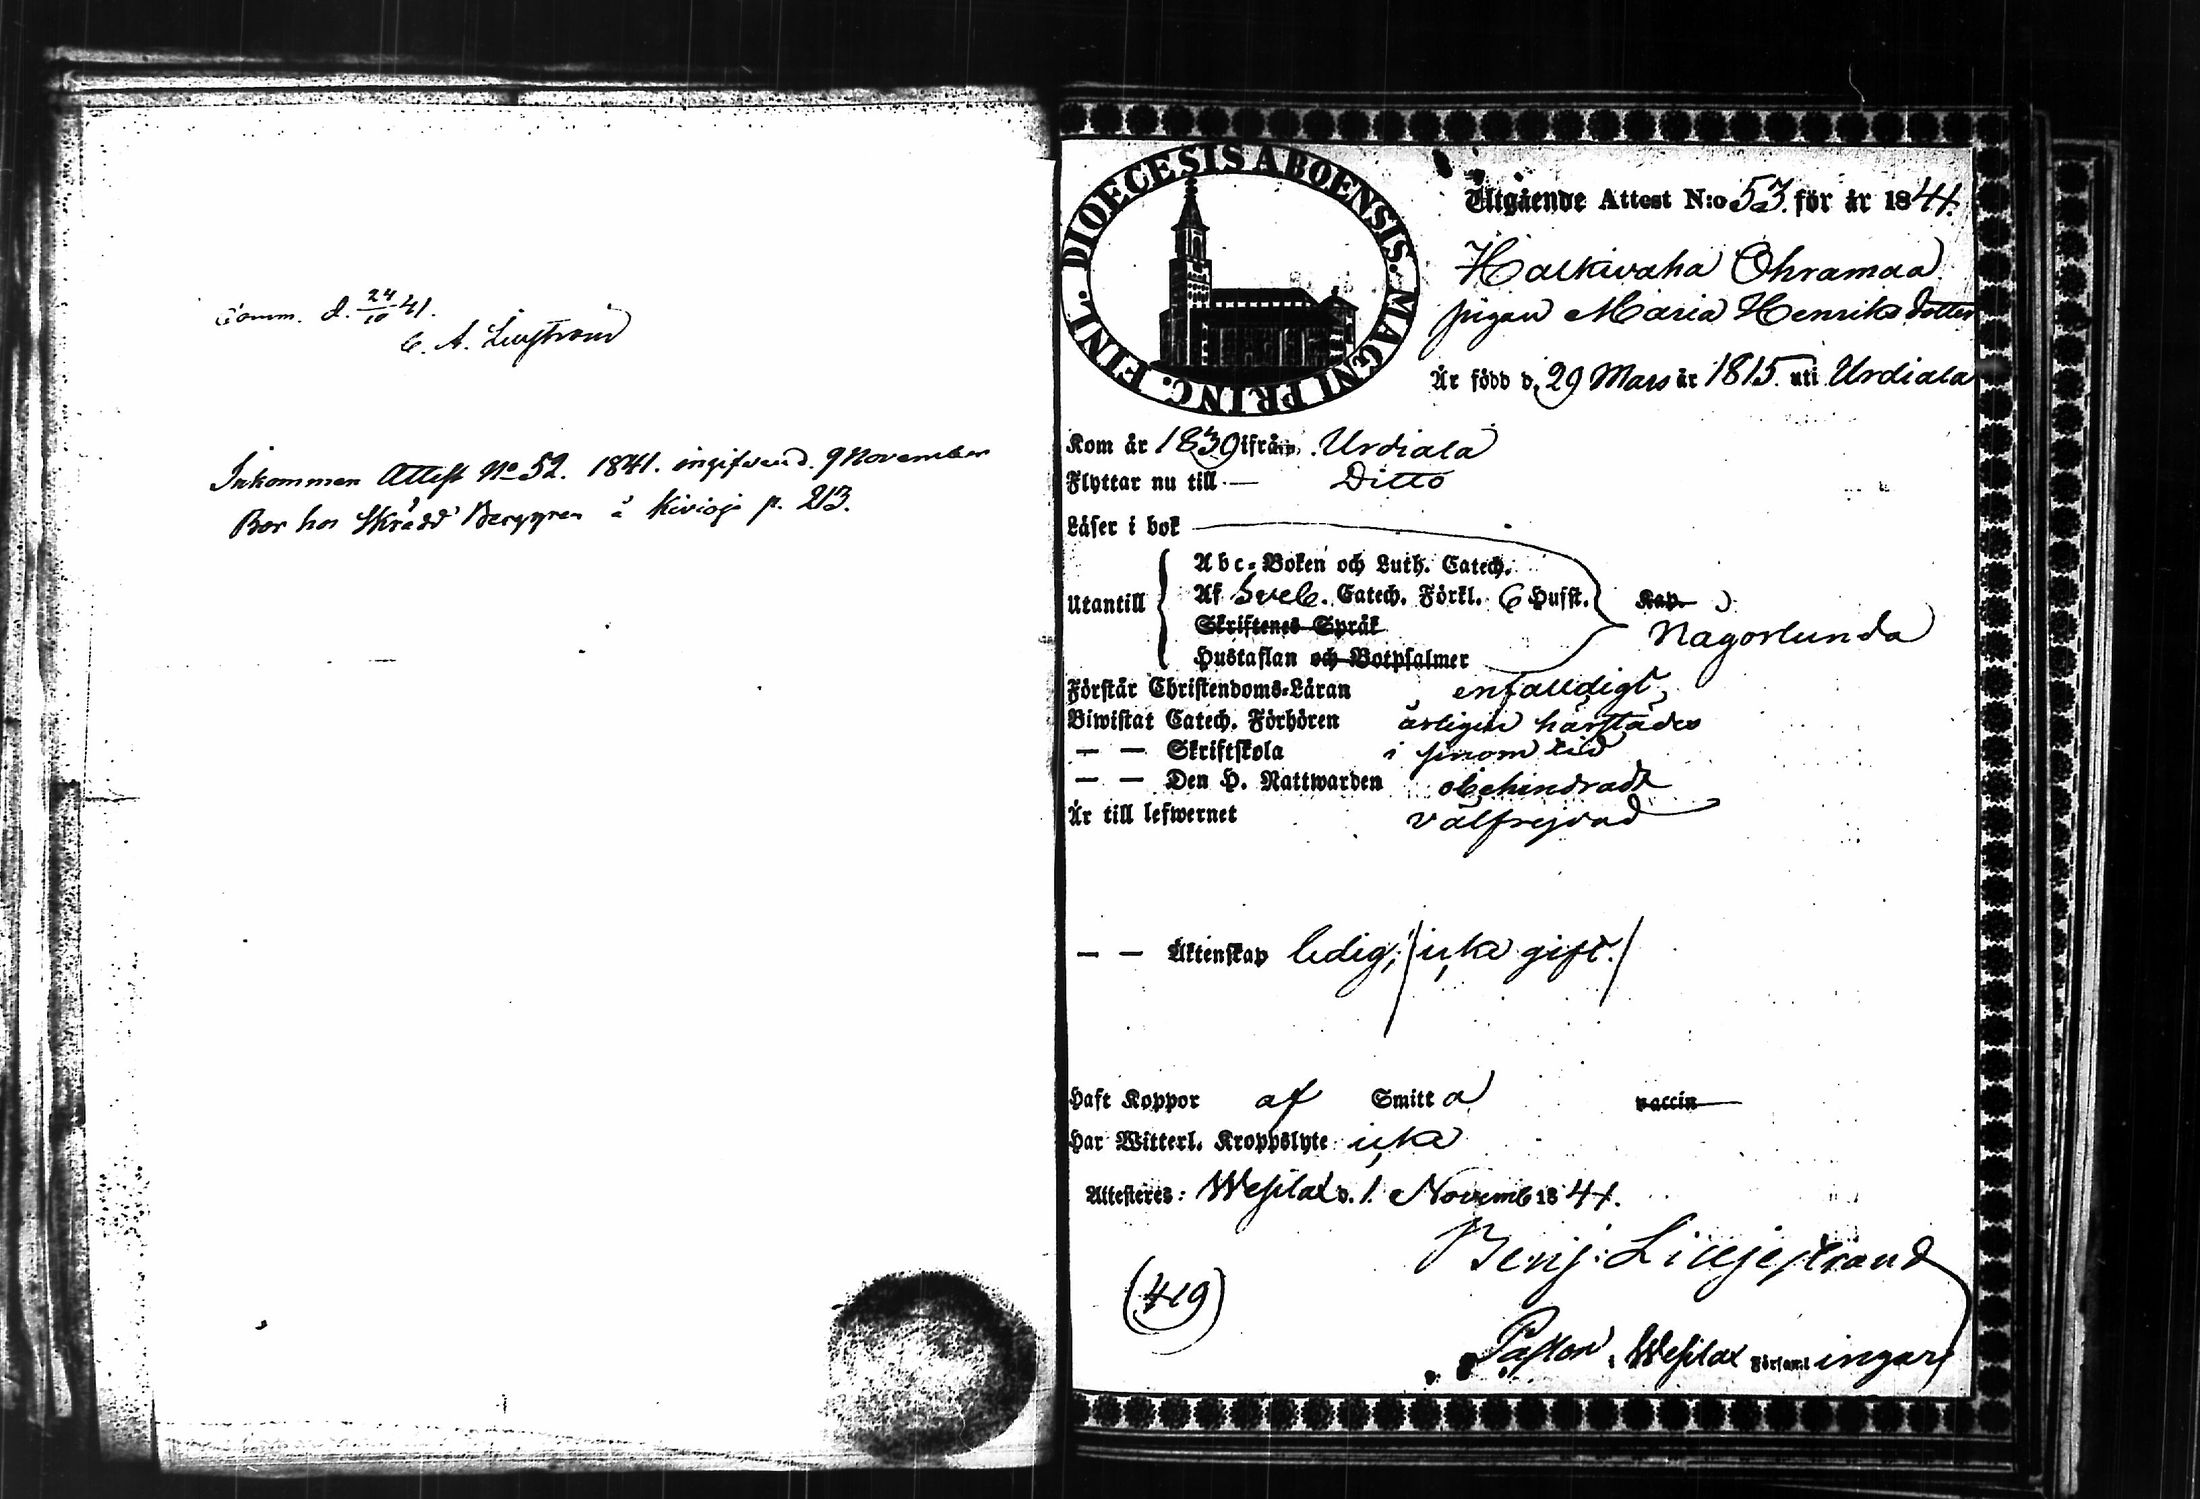 Comm. d. 24/10 41.
C. A. Limstroin
Inkommen Attest No 52. 1841. ingifven d. 9 November
Bor hos Skrädd Berggren å Kivioja p. 213.
DIOECESIS ABOENSIS. MAGNI PRINC. FINL.
Utgående Attest N:o 53. för år 1841.
Halkivaha Ohramaa
pigan Maria Henriksdotter
Är född d. 29 Mars år 1815. uti Urdiala
Kom år 1839 ifrån Urdiala
Flyttar nu till — Ditto
Läser i bok
Utantill
Abc-Boken och Luth. Catech.
Af Sveb. Catech. Förkl. 6 Hufst. Kap.
Skriftenes Språk
Nagorlunda
Hustaflan och Botpsalmer
Förstår Christendoms-Läran enfalldigt,
Biwistat Catech. Förhören årligen härstädes
— — Skriftskola i sinom tid
— — Den H. Nattwarden obehindradt
Är till lefwernet välfrejdad
— — Äktenskap ledig, /icke gift./
Haft Koppor af Smitta vaccin
Har Witterl. Kroppslyte icke
Attesteras: Wesilax d. 1. Novemb 1841.
Benj: Lilljestrand
(419)
Pastor i Wesilax Församlingar